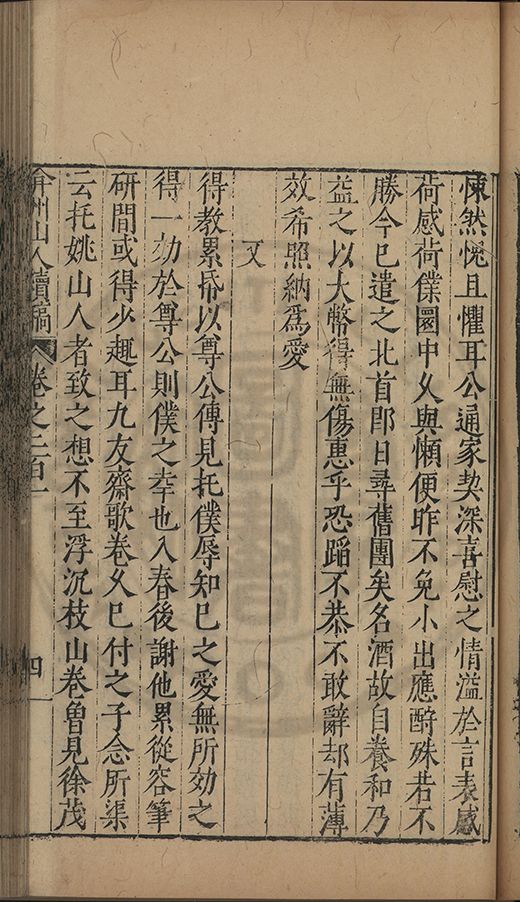 悚然悅且懼耳公通家契深喜慰之情溢於言表感
荷感荷僕園中久與懶便昨不免小出應酧殊若不
勝今已遣之北首即日尋舊團矣名酒故自養和乃
益之以大幣得無傷惠乎恐蹈不恭不敢辭却有薄
效希照納爲愛
又
得教累帋以尊公傳見托僕辱知已之愛無所効之
得一効於尊公則僕之幸也入春後謝他累從容筆
研間或得少趣耳九友齋歌卷久已付之子念所渠
云托姚山人者致之想不至浮沉枝山卷曾見徐茂
弇州山人續稿 卷之二百一 四